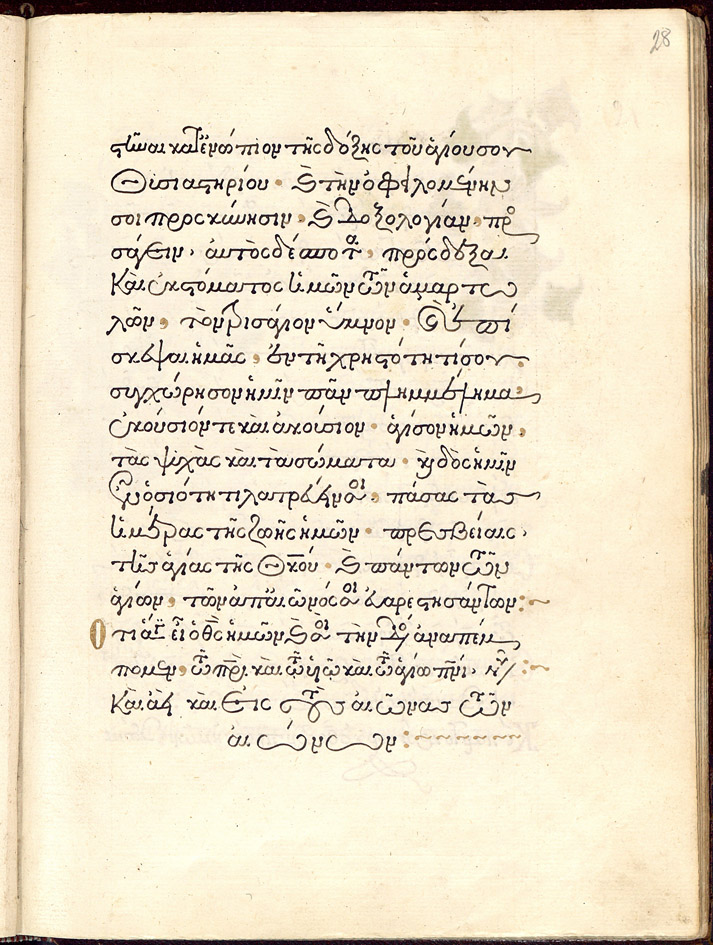 28
στῆναι κατενώπιον τῆς δόξης τοῦ ἁγίου σου
Θυσιαστηρίου · καὶ τὴν ὀφειλομένην
σοι προσκύνησιν · καὶ δοξολογίαν, προ
σάγειν · αὐτὸς δέσποτα, πρόσδεξαι
Καὶ ἐκ στόματος ἡμῶν τῶν ἁμαρτω
λῶν, τὸν τρισάγιον ὕμνον · καὶ ἐπί
σκεψαι ἡμᾶς, ἐν τῇ χρηστότητί σου ·
συγχώρησον ἡμῖν πᾶν πλημμέλημα
ἑκούσιόν τε καὶ ἀκούσιον · ἁγίασον ἡμῶν,
τὰς ψυχὰς καὶ τὰ σώματα · καὶ δὸς ἡμῖν
ἐν ὁσιότητι λατρεύειν σοι, πάσας τὰς
ἡμέρας τῆς ζωῆς ἡμῶν · πρεσβείαις,
τῆς ἁγίας τῆς Θκου · καὶ πάντων τῶν
ἁγίων, τῶν ἀπ' αἰῶνός σοι εὐαρεστησάντων :~
Ὅτι ἅγιος εἶ ὁ θς ἡμῶν καὶ σοὶ τὴν δόξαν ἀναπέμ
πομεν, τῷ πρὶ καὶ τῷ υἱῷ καὶ τῷ ἁγίῳ πνι · νῦν :~
Καὶ ἀεὶ καὶ εἰς τοὺς αἰῶνας τῶν
αἰώνων :~~~~~~